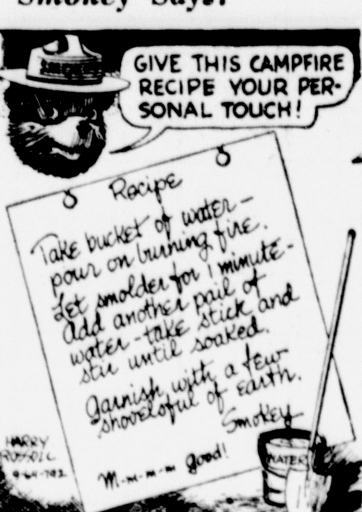 Smokey Says:
GIVE THIS CAMPFIRE
RECIPE YOUR PER-
SONAL TOUCH!
Recipe
Take bucket of water-
pour on burning fire.
Let smolder for 1 minute-
add another pail of
water-take stick and
stir until soaked.
Garnish with a few
shovelsful of earth.
Smokey
M-m-m-m good!
WATER
HARRY
RUSSELL
9-64-792